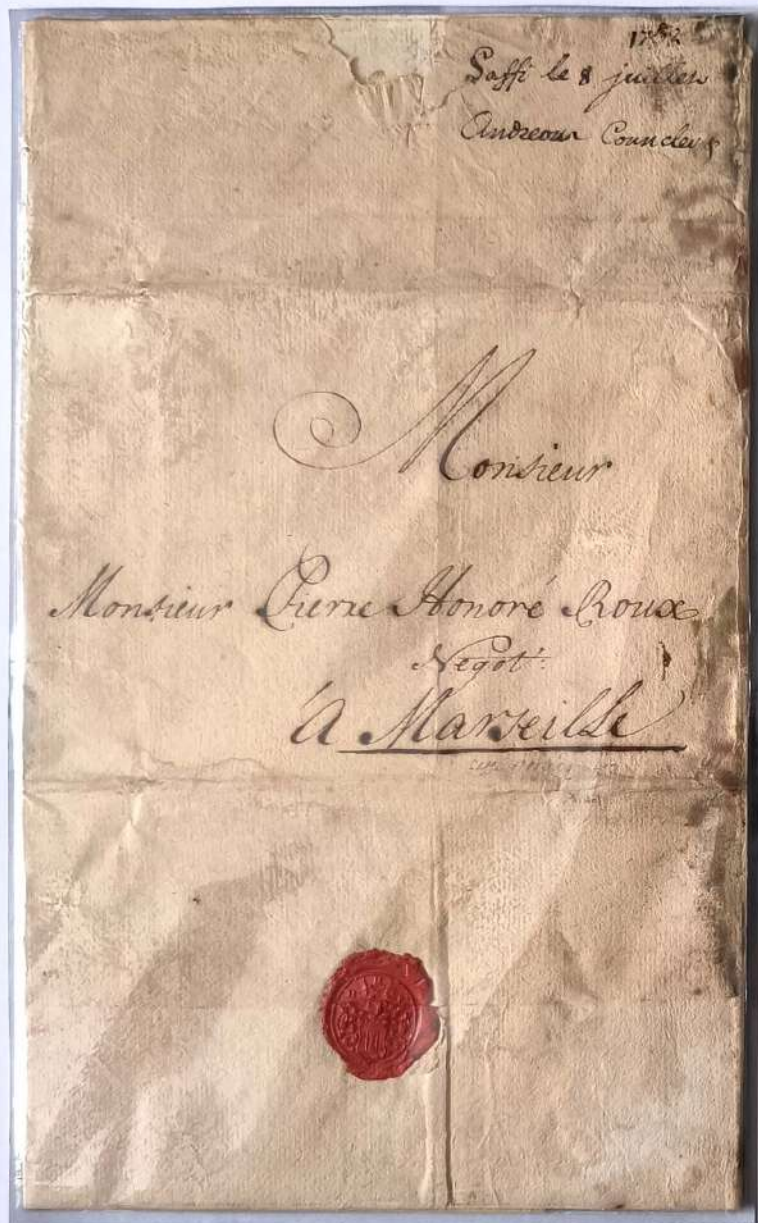 1752
Saffi le 8 juillet
Andreas
Monsieur
Monsieur Pierre Honoré Roux
Negot.t
à Marseille